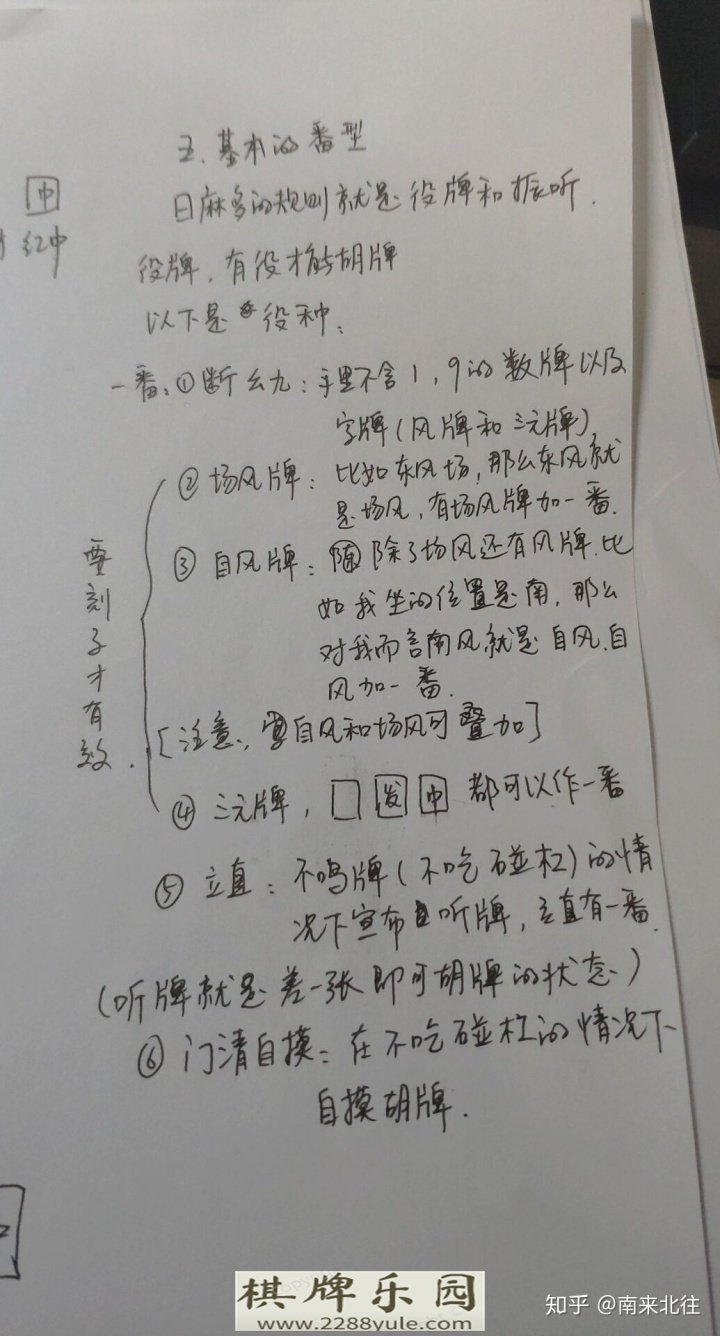 五、基本的番型
中
红中
日麻多的规则就是役牌和振听.
役牌，有役才能胡牌
以下是役种：
一番：①断幺九：手里不含1，9的数牌以及
字牌(风牌和三元牌)
②场风牌：比如东风场，那么东风就
是场风，有场风牌加一番.
③自风牌：除了场风还有风牌.比
如我坐的位置是南，那么
对我而言南风就是自风.自
风加一番.
要刻子才有效.
[注意：自风和场风可叠加]
④三元牌，发中都可以作一番
⑤立直：不鸣牌(不吃碰杠)的情
况下宣布听牌，立直有一番.
(听牌就是差一张即可胡牌的状态)
⑥门清自摸：在不吃碰杠的情况下
自摸胡牌.
棋牌乐园
www.2288yule.com
知乎 @南来北往